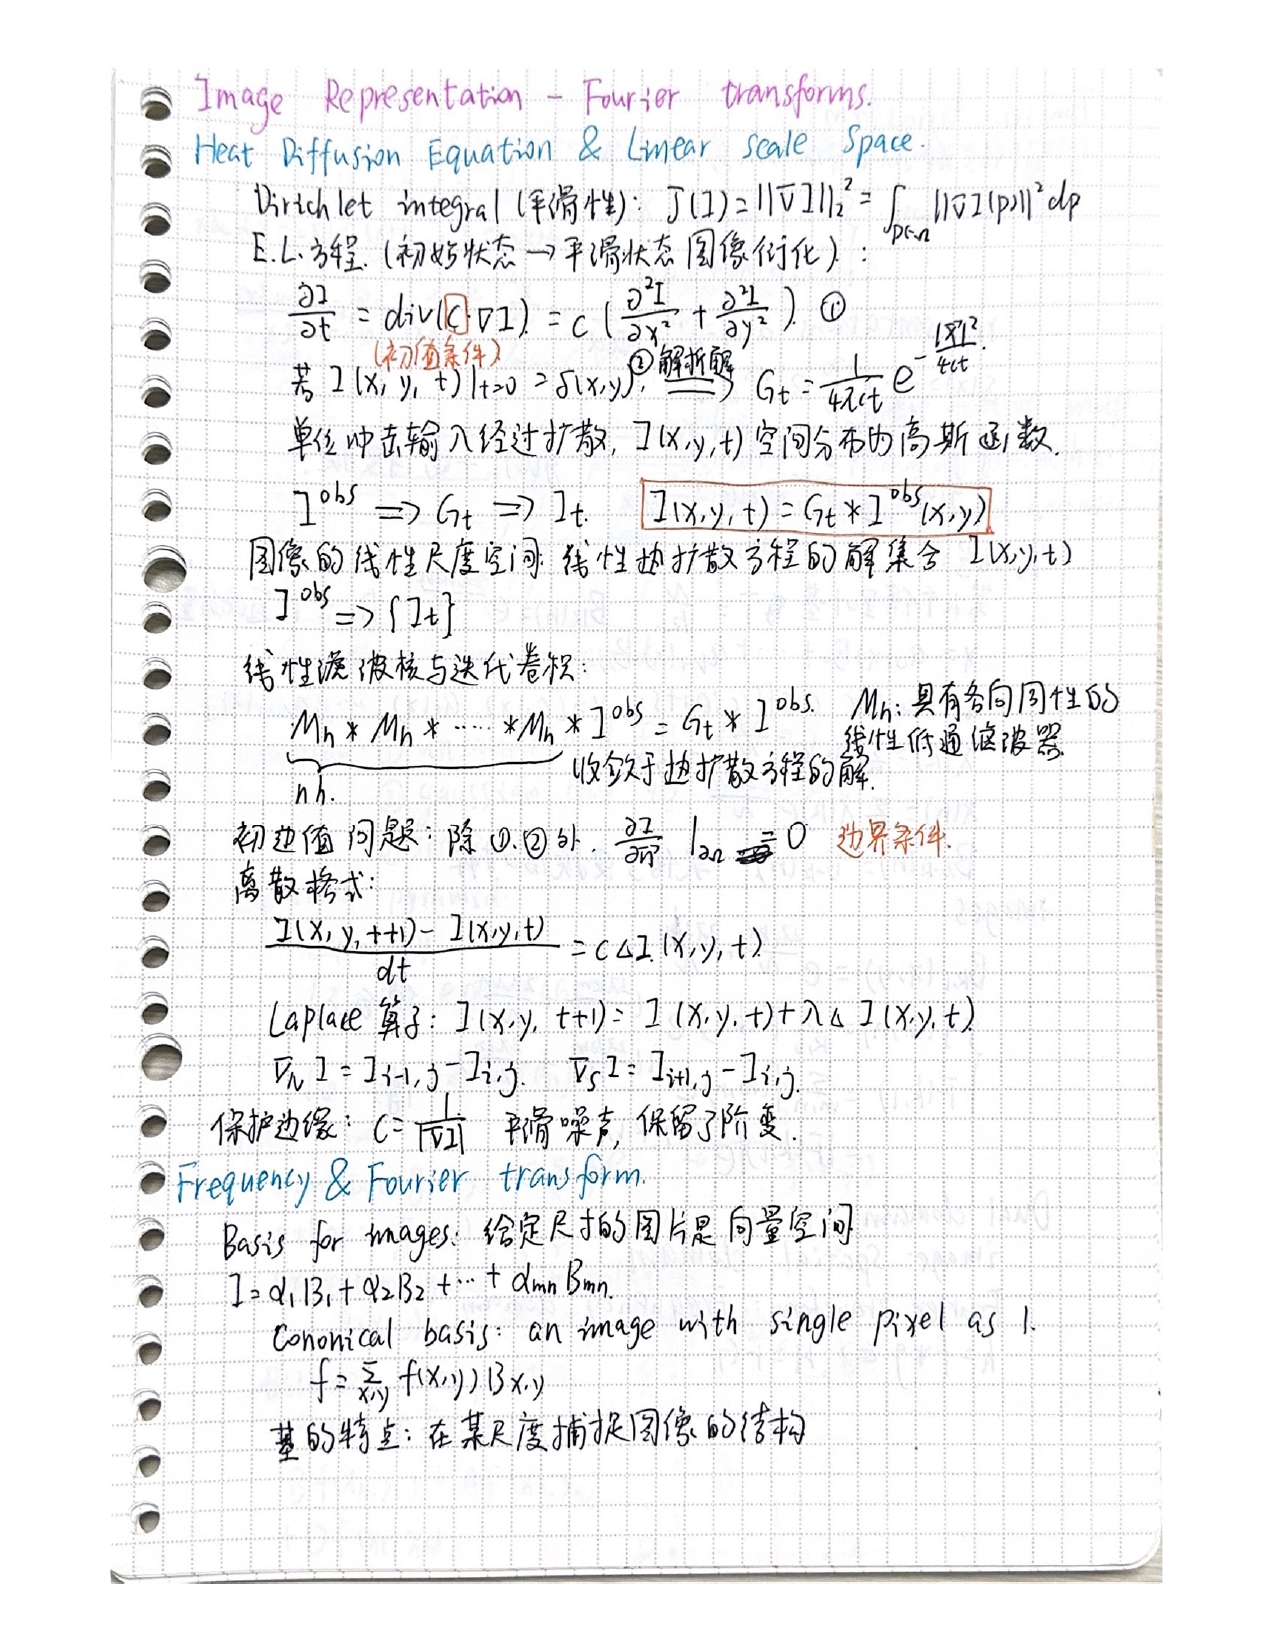 Image Representation - Fourier transforms.
Heat Diffusion Equation & Linear scale Space.
Dirichlet integral (平滑性): J(I) = ||∇I||₂² = ∫_{p∈Ω} ||∇I(p)||² dp
E.L.方程. (初始状态 → 平滑状态 图像衍化):
∂I/∂t = div(C·∇I) = c (∂²I/∂x² + ∂²I/∂y²). ①
(初值条件) ② 解析解
若 I(x, y, t)|t=0 = δ(x,y), ⟹ G_t = 1/(4πct) e^{-|x|²/4ct}.
单位冲击输入经过扩散, I(x,y,t) 空间分布为高斯函数.
I^obs ⇒ G_t ⇒ I_t. I(x,y,t) = G_t * I^obs(x,y)
图像的线性尺度空间: 线性热扩散方程的解集合 I(x,y,t)
I^obs ⇒ {I_t}
线性滤波核与迭代卷积:
M_h * M_h * ····· * M_h * I^obs = G_t * I^obs. M_h: 具有各向同性的
线性低通滤波器.
nh. 收敛于热扩散方程的解.
初边值问题: 除①.②外. ∂I/∂n |∂Ω = 0 边界条件.
离散格式:
(I(x, y, t+1) - I(x,y,t))/dt = c△I(x,y,t).
Laplace 算子: I(x,y, t+1) = I(x,y,t) + λ△I(x,y,t).
∇_N I = I_{i-1,j} - I_{i,j}. ∇_S I = I_{i+1,j} - I_{i,j}.
保护边缘: C = 1/|∇I| 平滑噪声, 保留了阶变.
Frequency & Fourier transform.
Basis for images: 给定尺寸的图片是向量空间
I = α₁B₁ + α₂B₂ + ··· + α_mn B_mn.
Cononical basis: an image with single pixel as 1.
f = Σ_{x,y} f(x,y) B_{x,y}
基的特点: 在某尺度捕捉图像的结构